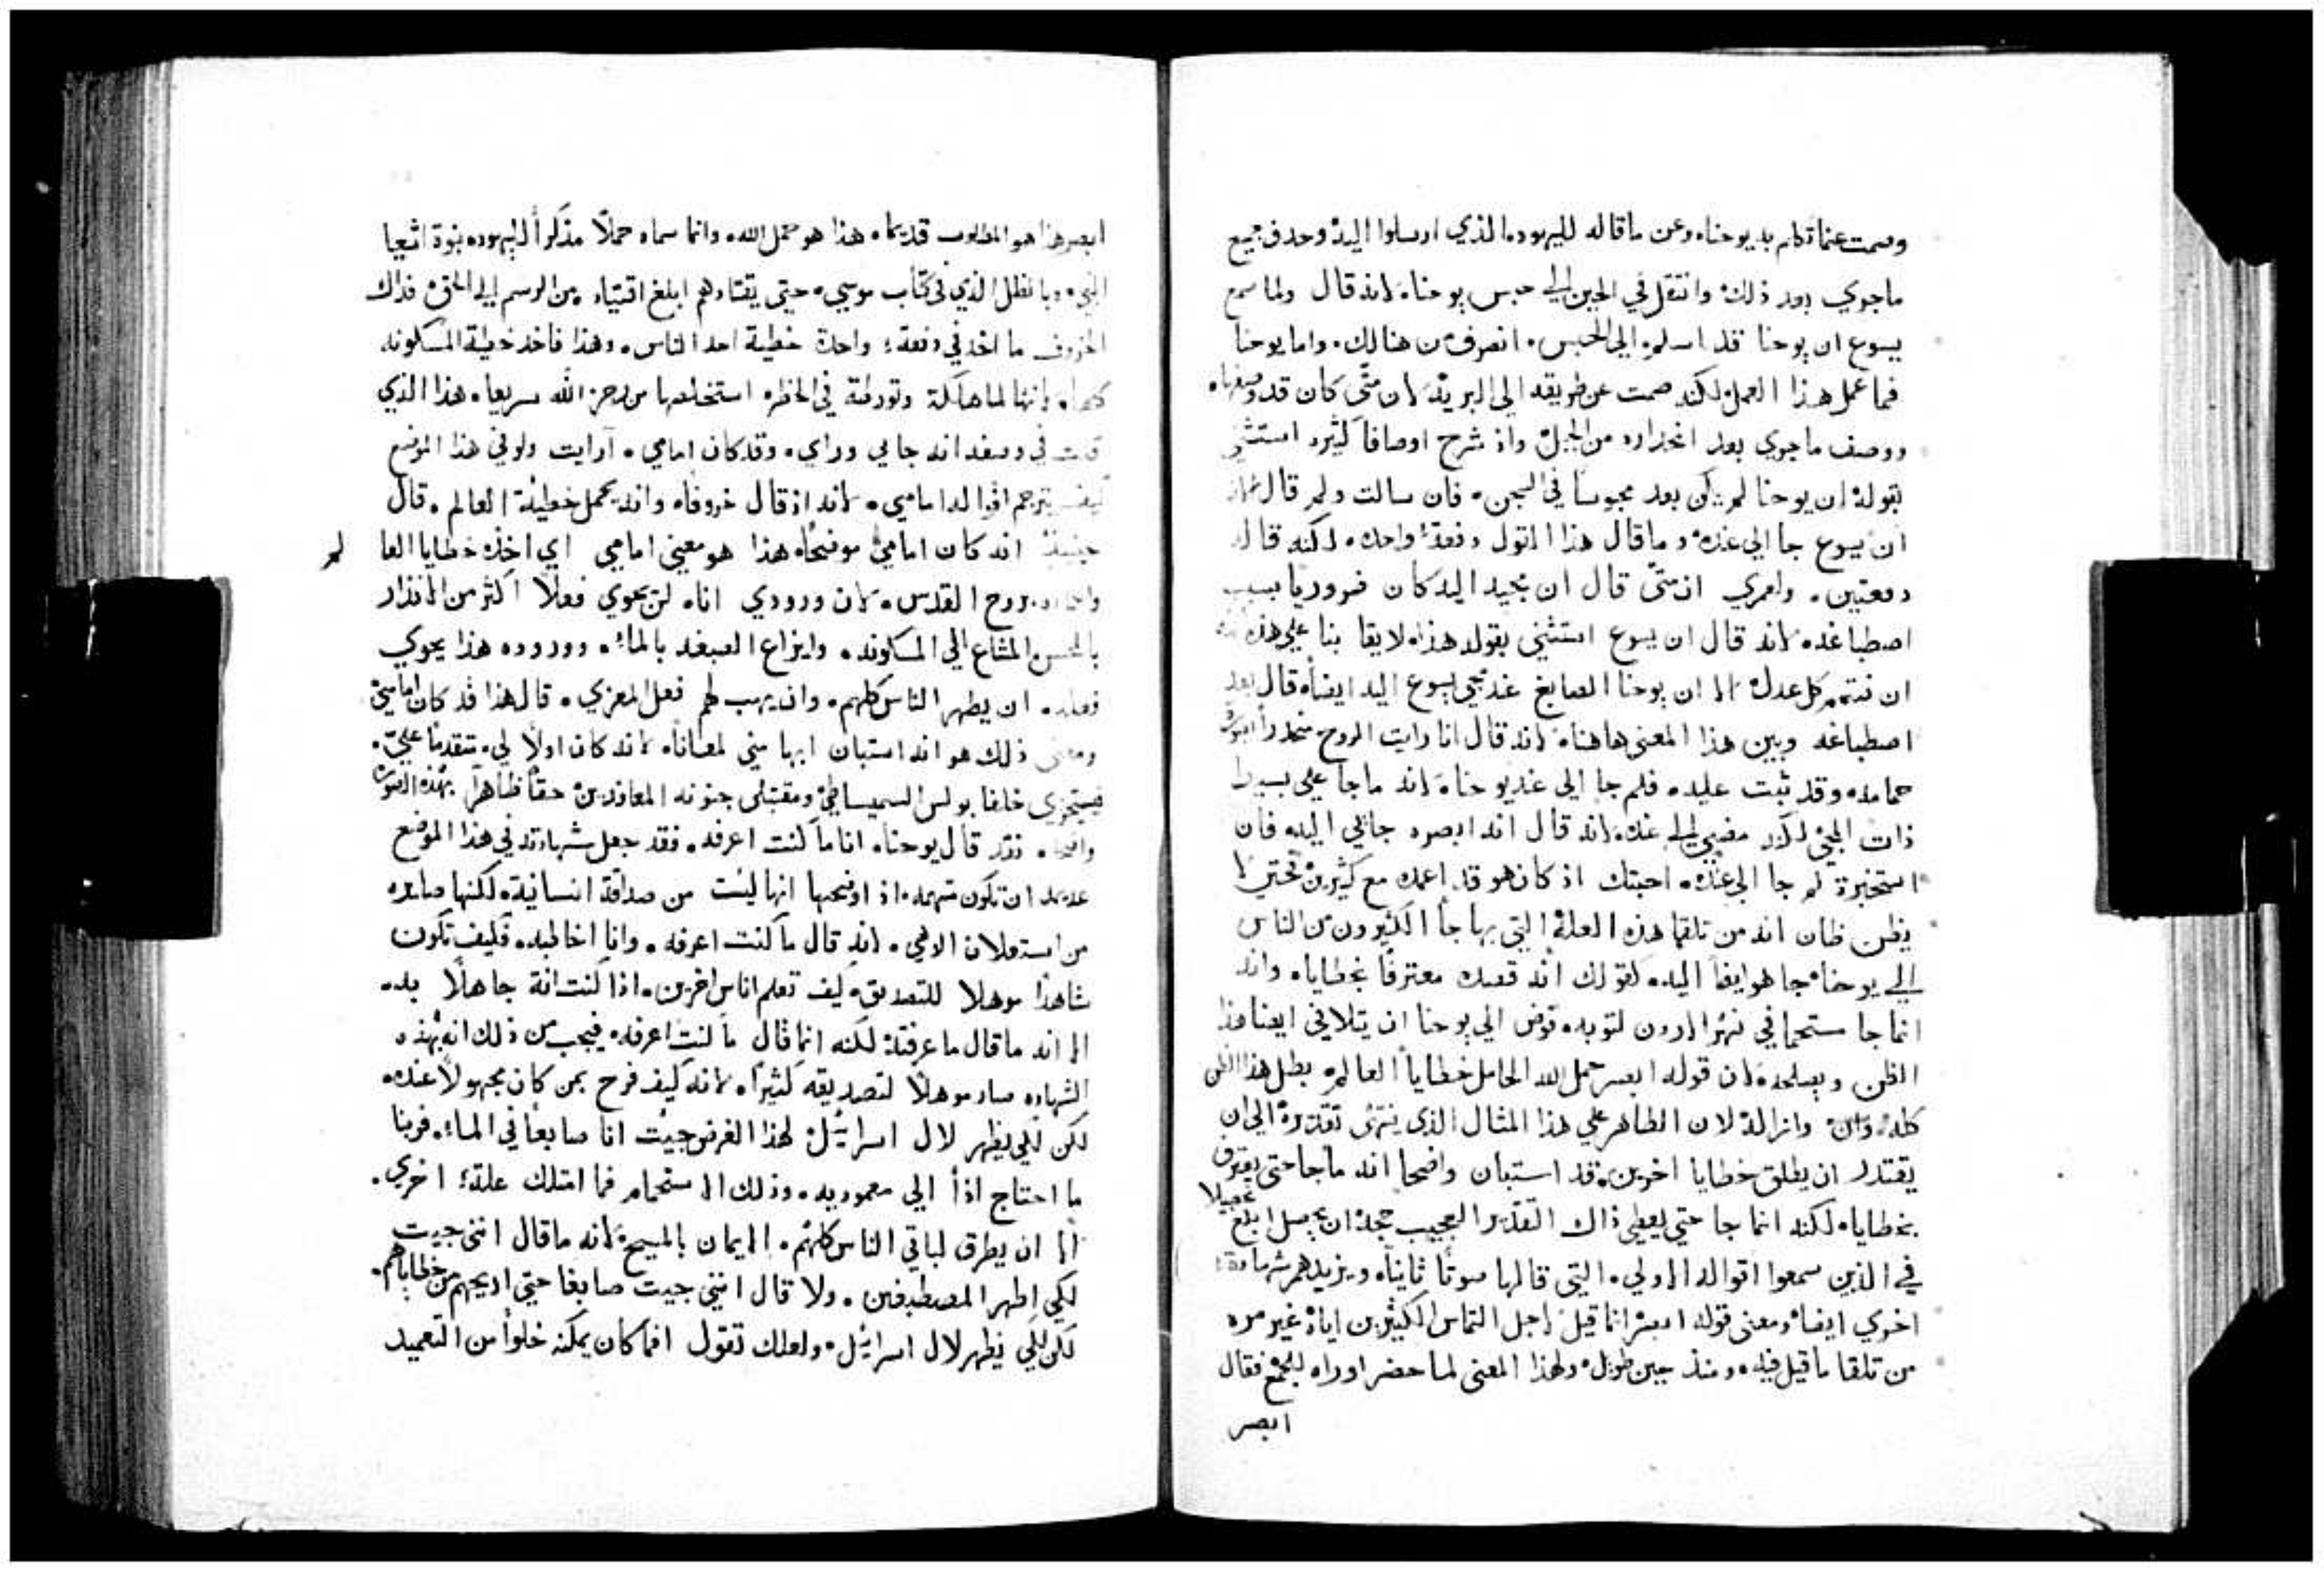 وصمت عما تكلم به يوحنا. وعن ما قاله لليهود. الذي ارسلوا اليه. وحذف جميع
ما جري بعد ذلك. وانتقل في الحين الي حبس يوحنا. لانه قال ولما سمع
يسوع ان يوحنا قد اسلم الي الحبس. انصرف من هنالك. واما يوحنا
فما عمل هذا العمل لكنه صمت عن طريقه الي البريه. لان متي كان قد وصفها.
ووصف ما جري بعد انحداره من الجبل. واذ شرح اوصافا كثيره استثني
بقوله ان يوحنا لم يكن بعد محبوسا في السجن. فان سالت ولم قال
ان يسوع جا الي عنده. وما قال هذا القول دفعة واحده. لكنه قاله
دفعتين. ولعمري ان متي قال ان مجيه اليه كان ضروريا بسبب
اصطباغه. لانه قال ان يسوع استثني بقوله هذا. لايقا بنا علي هذه
ان نتمم كل عدل. الا ان يوحنا الصابغ عند مجي يسوع اليه ايضا. قال بعد
اصطباغه وبين هذا المعني هاهنا. لانه قال انا رايت الروح منحدرا بصورة
حمامه. وقد ثبت عليه. فلم جا الي عند يوحنا. لانه ما جا علي بسيط
ذات المجي لكنه مضي الي عنده. لانه قال انه ابصره جايي اليه. فان
استخبرت لم جا الي عنده. اجبتك اذ كان هو قد اعمده مع كثيرين حتي لا
يظن ظان انه من تلقا هذه العلة التي بها جا الكثيرون من الناس
الي يوحنا. جا هو ايضا اليه. كقولك انه قصده معترفا بخطاياه. وانه
انما جا مستحما في نهر الاردن لتوبه. فوض الي يوحنا ان يتلافي ايضا هذا
الظن ويصلحه. لان قوله ابصر حمل الله الحامل خطايا العالم. بطل هذا الظن
كله. وازاله. لان الظاهر علي هذا المثال الذي ينتهي تقديره الي ان
يقتدر ان يطلق خطايا اخرين. فقد استبان واضحا انه ما جا حتي يعترف
بخطاياه. لكنه انما جا حتي يعطي ذاك القدير العجيب حجة ان يحصل ابلغ تحصيلا
في الذين سمعوا اقواله الاولي. التي قالها صوتا ثانيا. ويزيدهم شهادة
اخري ايضا. ومعني قوله ابصر انما قيل لاجل التماس الكثيرين اياه غير مره
من تلقا ما قيل فيه. ومنذ حين طويل. ولهذا المعني لما حضر اوراه للجمع فقال
ابصر
ابصر هذا هو المطلوب قديما. هذا هو حمل الله. وانما سماه حملا مذكرا اليهود. بنوة اشعيا
النبي. وبالظل الذي في كتاب موسي. حتي يقتادهم ابلغ اقتياد. من الرسم الي الحق. فذاك
الخروف ما اخذ في دفعة واحدة خطية احد الناس. وهذا فاخذ خطية المسكونه
كلها. لانها لما هالكة وتورطة في الخطر استخلصها من رجز الله سريعا. هذا الذي
قلت في وصفه انه جايي وراي. وقد كان امامي. ارايت ولوفي هذا الموضع
كيف يترجم اقواله امامي. لانه اذ قال خروفا. وانه يحمل خطية العالم. قال
حينيذ انه كان امامي موضحا. هذا هو معني امامي اي اخذه خطايا العا
لم
بروح القدس. لان ورودي انا. لن يحوي فعلا اكثر من الانذار
بالمحسن المشاع الي المسكونه. وايزاع الصبغه بالماء. ووروده هذا يحوي
فعله. ان يطهر الناس كلهم. وان يهب لهم فعل المعزي. قال هذا قد كان امامي
ومعني ذلك هو انه استبان ابها مني لمعانا. لانه كان اولا لي. متقدما علي.
فيستخزي خلفا بولس السميساطي ومقتبلي جنونه المعاندين حقا ظاهرا بهذه الصوره
واضحا. فقد قال يوحنا. انا ما كنت اعرفه. فقد جعل شهادته في هذا الموضع
عديمه ان تكون متهمه. اذ اوضحها انها ليست من صداقة انسانية. لكنها صايره
من استعلان الاهي. لانه قال ما كنت اعرفه. وانا اخاطبه. فكيف تكون
شاهدا موهلا للتصديق. كيف تعلم اناس اخرين. اذا كنت انة جاهلا به.
الا انه ما قال ما عرفته. لكنه انما قال ما كنت اعرفه. فيجب من ذلك انه بهذه
الشهاده صار موهلا لتصديقه كثيرا. لانه كيف فرح بمن كان مجهولا عنده.
لكن لكي يظهر لال اسرايل. لهذا الغرض جيت انا صابغا في الماء. فربنا
ما احتاج اذا الي معموديه. وذلك الاستحمام فما امتلك علة اخري.
الا ان يطرق لباقي الناس كلهم. الايمان بالمسيح. لانه ما قال انني جيت
لكي اطهر المصطبغين. ولا قال انني جيت صابغا حتي اريحهم من خطاياهم.
لكن لكي يظهر لال اسرايل. ولعلك تقول افما كان يمكنه خلوا من التعميد